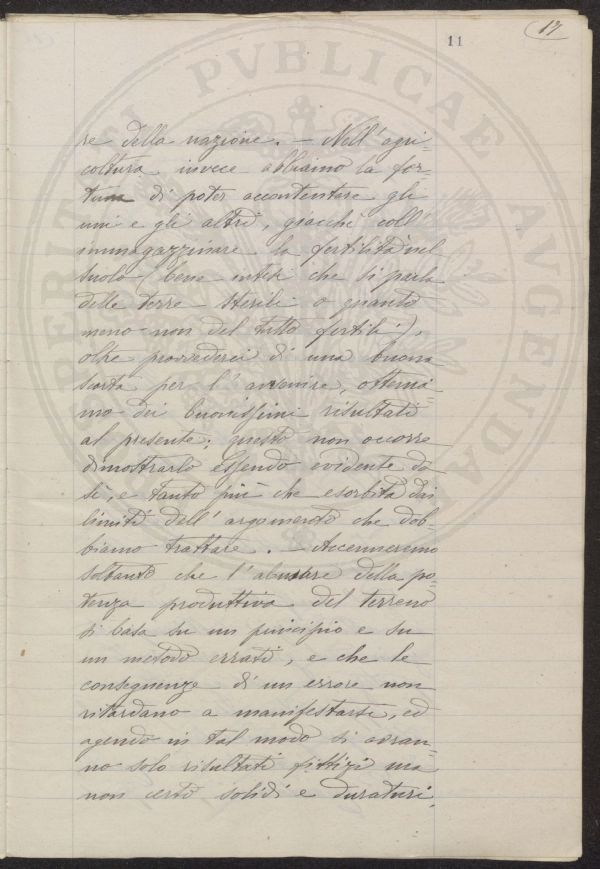 17
11
re della nazione. — Nell'agri-
coltura invece abbiamo la for-
tuna di poter accontentare gli
uni e gli altri, giacchè coll'
immagazzinare la fertilità nel
suolo (bene intesi che si parla
delle terre sterili o quanto
meno non del tutto fertili),
oltre provvederci di una buona
scorta per l'avvenire, ottenia-
mo dei buonissimi risultati
al presente; questo non occorre
dimostrarlo essendo evidente da
sè, e tanto più che esorbita dai
limiti dell'argomento che dob-
biamo trattare. — Accenneremo
soltanto che l'abusare della po-
tenza produttiva del terreno
si basa su un principio e su
un metodo errati, e che le
conseguenze di un errore non
ritardano a manifestarsi, ed
agendo in tal modo si avran-
no solo risultati fittizi ma
non certo solidi e duraturi.